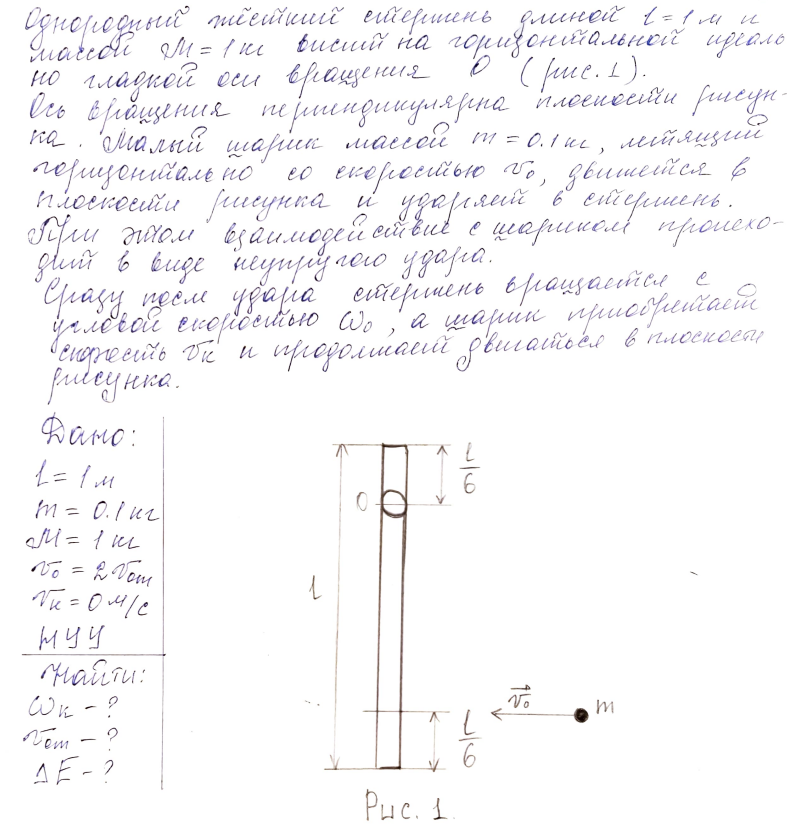 Однородный жёсткий стержень длиной l = 1 м и
массой M = 1 кг висит на горизонтальной идеаль
но гладкой оси вращения O (рис. 1).
Ось вращения перпендикулярна плоскости рисун-
ка. Малый шарик массой m = 0.1 кг, летящий
горизонтально со скоростью v₀, движется в
плоскости рисунка и ударяет в стержень.
При этом взаимодействие с шариком происхо-
дит в виде неупругого удара.
Сразу после удара стержень вращается с
угловой скоростью ω₀, а шарик приобретает
скорость vк и продолжает двигаться в плоскости
рисунка.
Дано:
l = 1 м
m = 0.1 кг
M = 1 кг
v₀ = 2 vот
vк = 0 м/с
НУУ
Найти:
ωк - ?
vот - ?
ΔE - ?
l/6
O
l
v₀
m
l/6
Рис. 1.